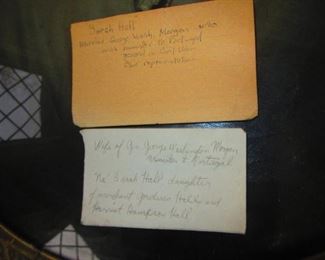 Sarah Hall
Married George Wash. Morgan who
was minister to Portugal
General in Civil War
Wife of Gen George Washington Morgan
Minister to Portugal
Ne' Sarah Hall daughter
of merchant Hall and
Harriet Hall